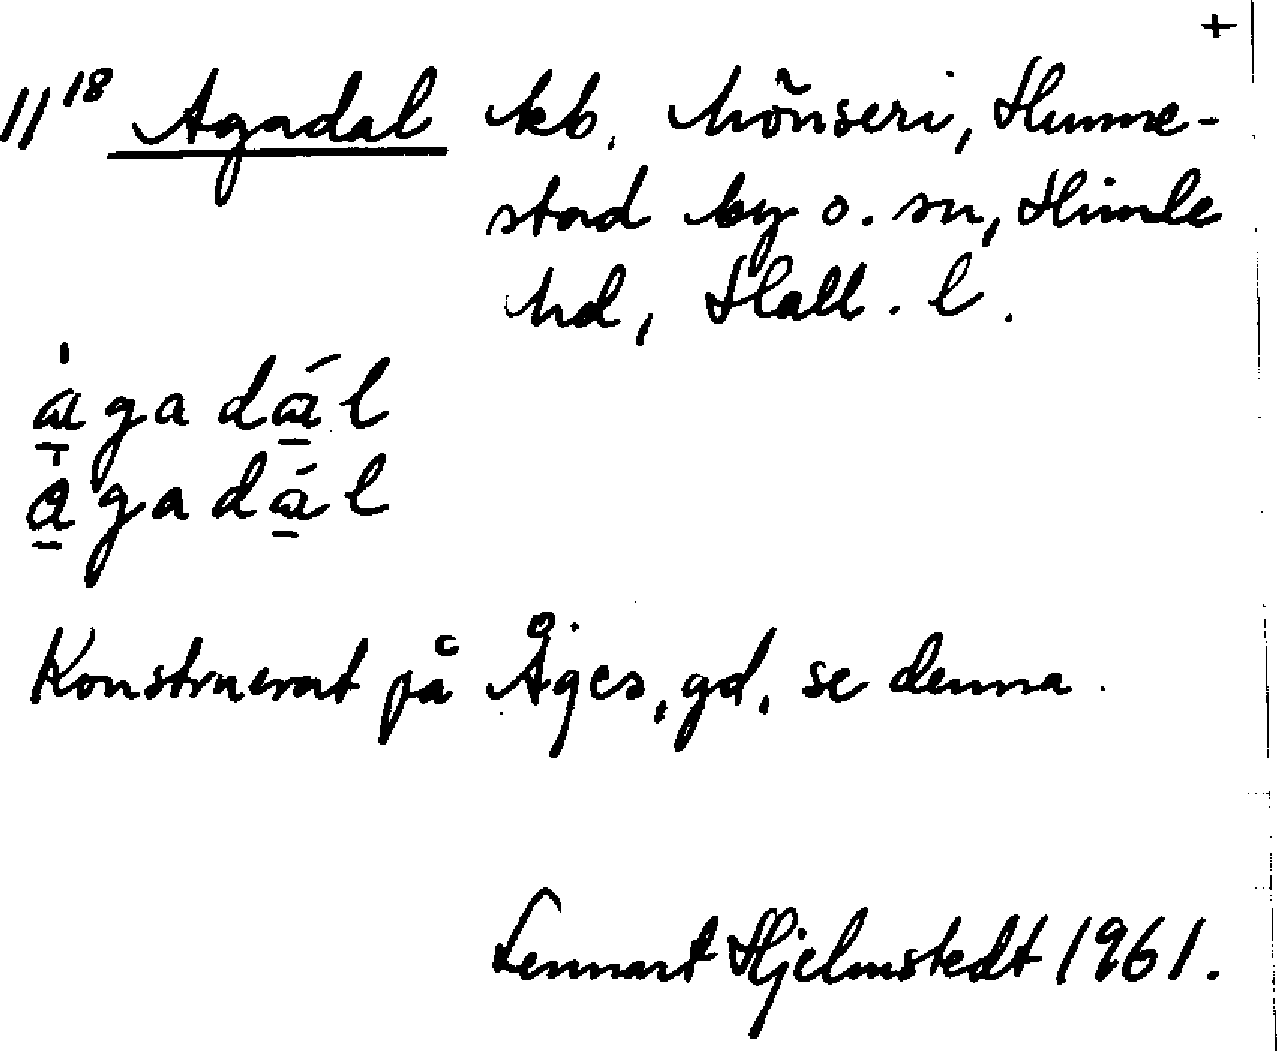 +
11¹⁸ Agadal kb. hönseri, Hunne-
stad by o. sn, Himle
hd, Hall. l.
a̱gadál
a̱gadál
Konstruerat på Åges, gd, se denna.
Lennart Hjelmstedt 1961.